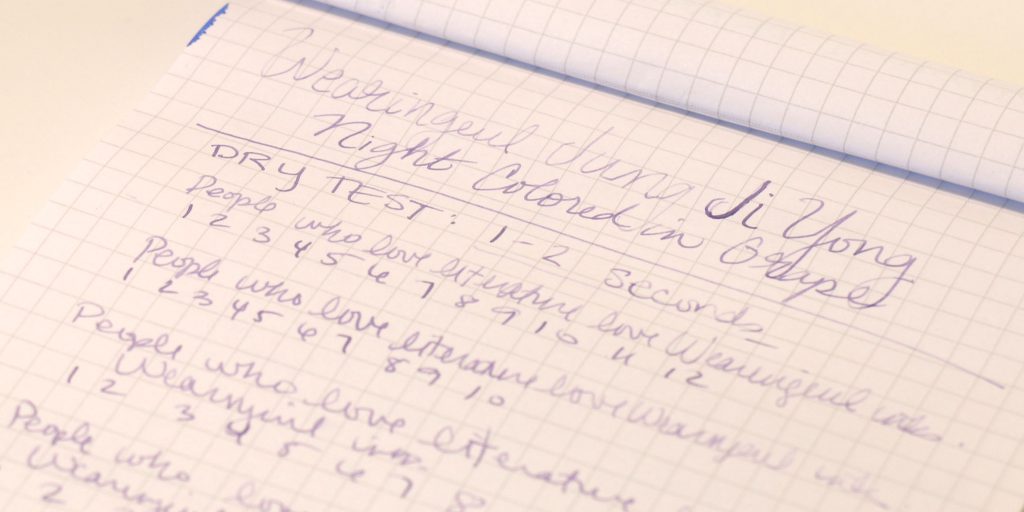 Wearingeul Jung Ji Yong
Night Colored in Grapes
DRY TEST: 1-2 seconds
People who love literature love Wearingeul inks.
1 2 3 4 5 6 7 8 9 10 11 12
People who love literature love Wearingeul inks
1 2 3 4 5 6 7 8 9 10
People who love literature
Wearingeul inks.
1 2 3 4 5 6 7 8
People who love
2